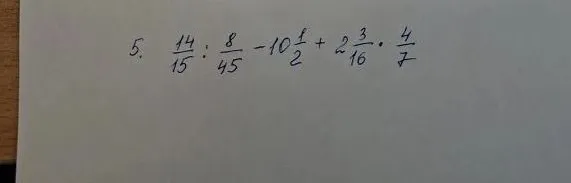 5. 14/15 : 8/45 - 10 1/2 + 2 3/16 · 4/7